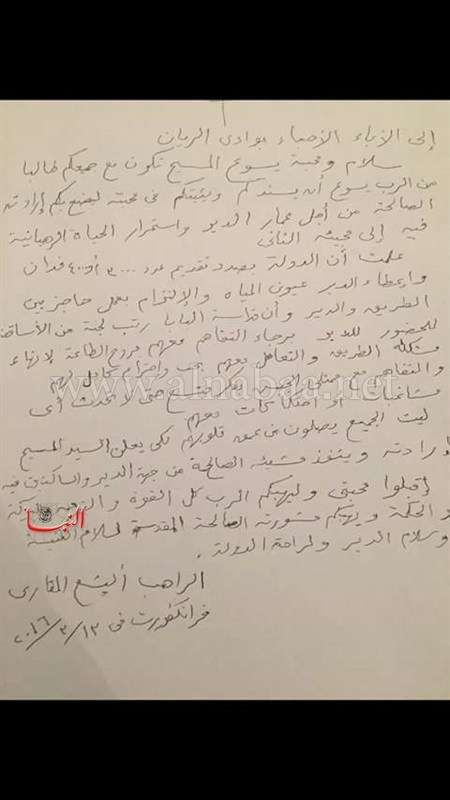 إلى الأبناء الأحباء بوادى الريان
سلام ومحبة يسوع المسيح تكون مع جميعكم طالبا
من الرب يسوع أن يسندكم ويثبتكم فى محبته ليصنع بكم إرادته
الصالحة من أجل عمار الدير واستمرار الحياة الرهبانية
فيه إلى مجيئه الثانى
علمت أن الدولة بصدد تقديم عدد ٣٠٠٠ أو ٤٠٠٠ فدان
وإعطاء الدير عيون المياه والإلتزام بعمل حاجز بين
الطريق والدير وأن قداسة البابا رتب لجنة من الأساقفة
للحضور للدير برجاء التفاهم معهم بروح الطاعة لإنهاء
مشكلة الطريق والتعامل معهم بحب واحترام كامل لهم
والتفاهم مع ممثلى حتى لا تحدث أى
مشاحنات أو احتكاكات معهم
ليت الجميع يصلون من عمق قلوبهم لكى يعلن السيد المسيح
إرادته وينفذ مشيئته الصالحة من جهة الدير والساكنين فيه
إقبلوا محبتى وليهبكم الرب كل القوة والنعمة والبركة
والحكمة ويهبكم مشورته الصالحة المقدسة لسلام الكنيسة
وسلام الدير ولراحة الدولة .
الراهب أليشع المقارى
فرانكفورت فى ١٣/٣/٢٠١٦
www.alnabaa.net
النبأ